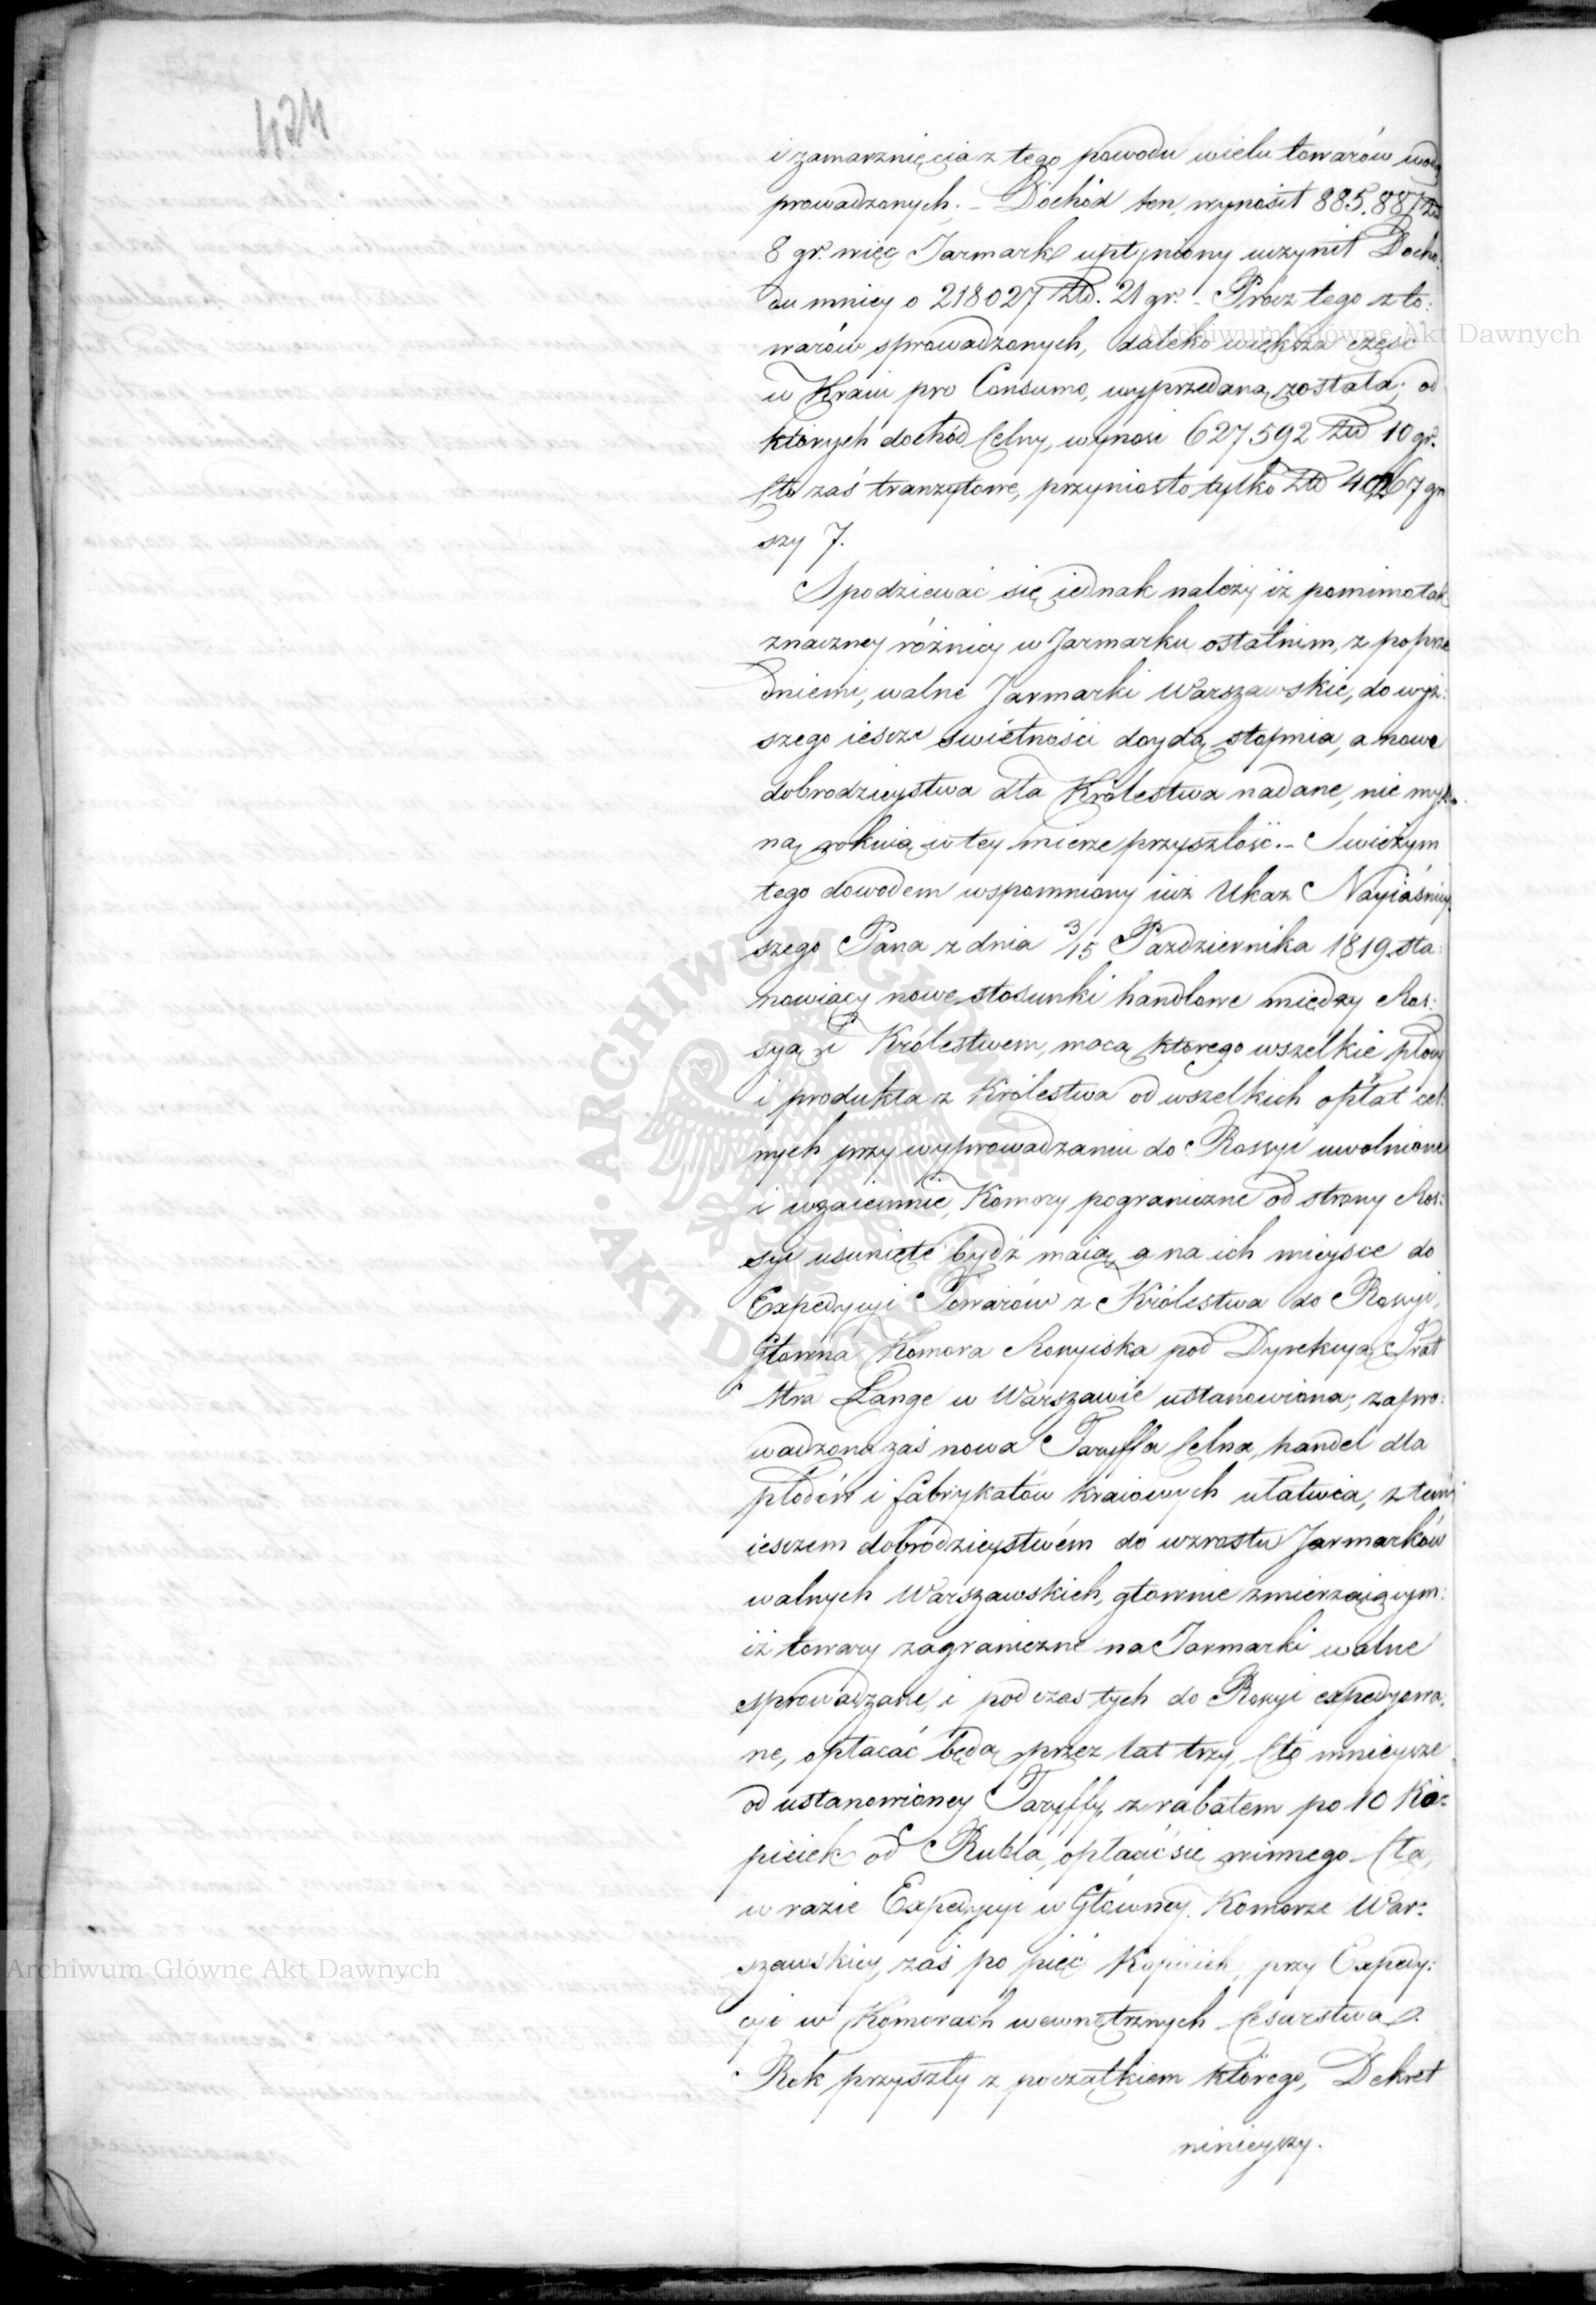 424
i zamarznięcia z tego powodu wielu towarów wodą
prowadzonych. – Dochód ten, wynosił 885.887 Złł
8 gr. więc Jarmark upłyniony uczynił Docho:
du mniey o 218027 Złł. 21 gr. – Prócz tego z to:
warów sprowadzonych, daleko większa część
w Kraiu pro Consumo, wyprzedaną została; od
których dochód Celny, wynosi 627592 Złł 10 gr.
Cło zaś tranzytowe, przyniosło tylko Złł gro
szy 7.
Spodziewać się iednak należy iż pomimo tak
znaczney różnicy w Jarmarku ostatnim, z poprze
dniemi, walne Jarmarki Warszawskie, do wyż:
szego iescze swietności doydą stopnia, a nowe
dobrodzieystwa dla Królestwa nadane, nie myl
ną rokuią w tey mierze przyszłość. – Swieżym
tego dowodem wspomniony iuż Ukaz Nayiaśniey
szego Pana z dnia 3/15 Pazdziernika 1819. sta:
nowiący nowe stosunki handlowe między Ros:
syą i Królestwem, mocą którego wszelkie płody
i produkta z Królestwa od wszelkich opłat cel:
nych przy wyprowadzaniu do Rossyi uwolnione
i wzaiemnie, Komory pograniczne od strony Ros:
syi usunięte bydź maią, a na ich mieysce do
Expedycyi Towarów z Królestwa do Rossyi,
Głowna Komora Rossyiska pod Dyrekcyą Pał
Mra Lange w Warszawie ustanowiona; zapro:
wadzona zaś nowa Taryffa Celna, handel dla
płodów i fabrykatów kraiowych ułatwia, z tem
iesczem dobrodzieystwém do wzrostu Jarmarków
walnych Warszawskich, głownie zmierzaiącym:
iż towary zagraniczne na Jarmarki walne
sprowadzane, i podczas tych do Rossyi expedyowa:
ne, opłacać będą przez lat trzy, Cło mnieysze
od ustanowioney Taryffy, z rabatem po 10 Ko:
pieiek od Rubla, opłacić się winnego Cła,
w razie Expedycyi w Główney Komorze War:
szawskiey, zaś po pięć Kopieiek, przy Expedy:
cyi w Komorach wewnętrznych Cesarstwa.
Rok przyszły z początkiem którego, Dekret
ninieyszy.
Archiwum Główne Akt Dawnych
Archiwum Główne Akt Dawnych
ARCHIWUM GŁÓWNE AKT DAWNYCH